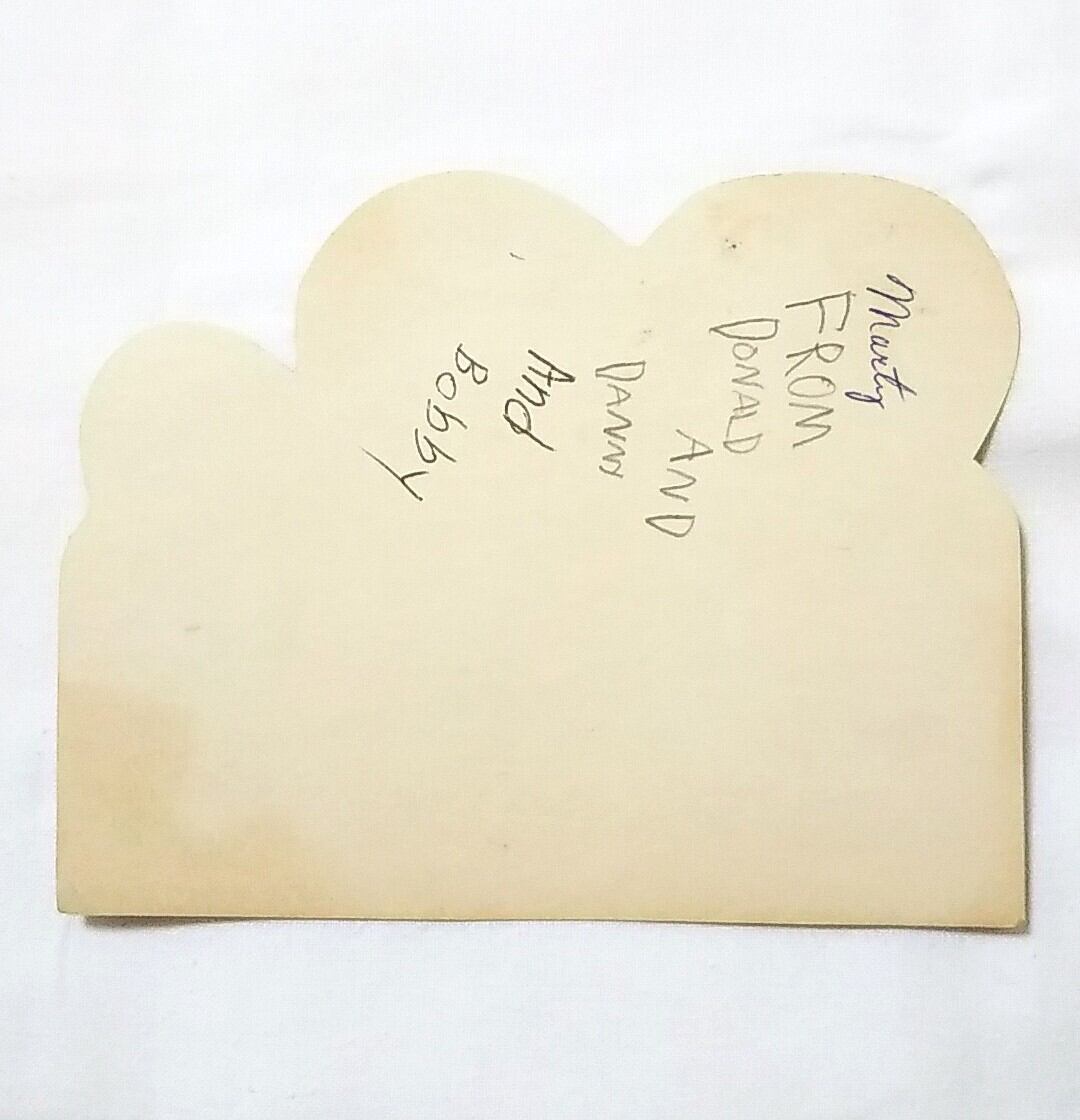 Marty
FROM
DONALD
AND
DANNY
And
Bobby